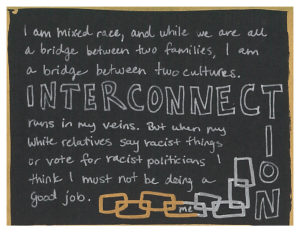 I am mixed race, and while we are all
a bridge between two families, I am
a bridge between two cultures.
INTERCONNECTION
runs in my veins. But when my
white relatives say racist things
or vote for racist politicians I
think I must not be doing a
good job.
me